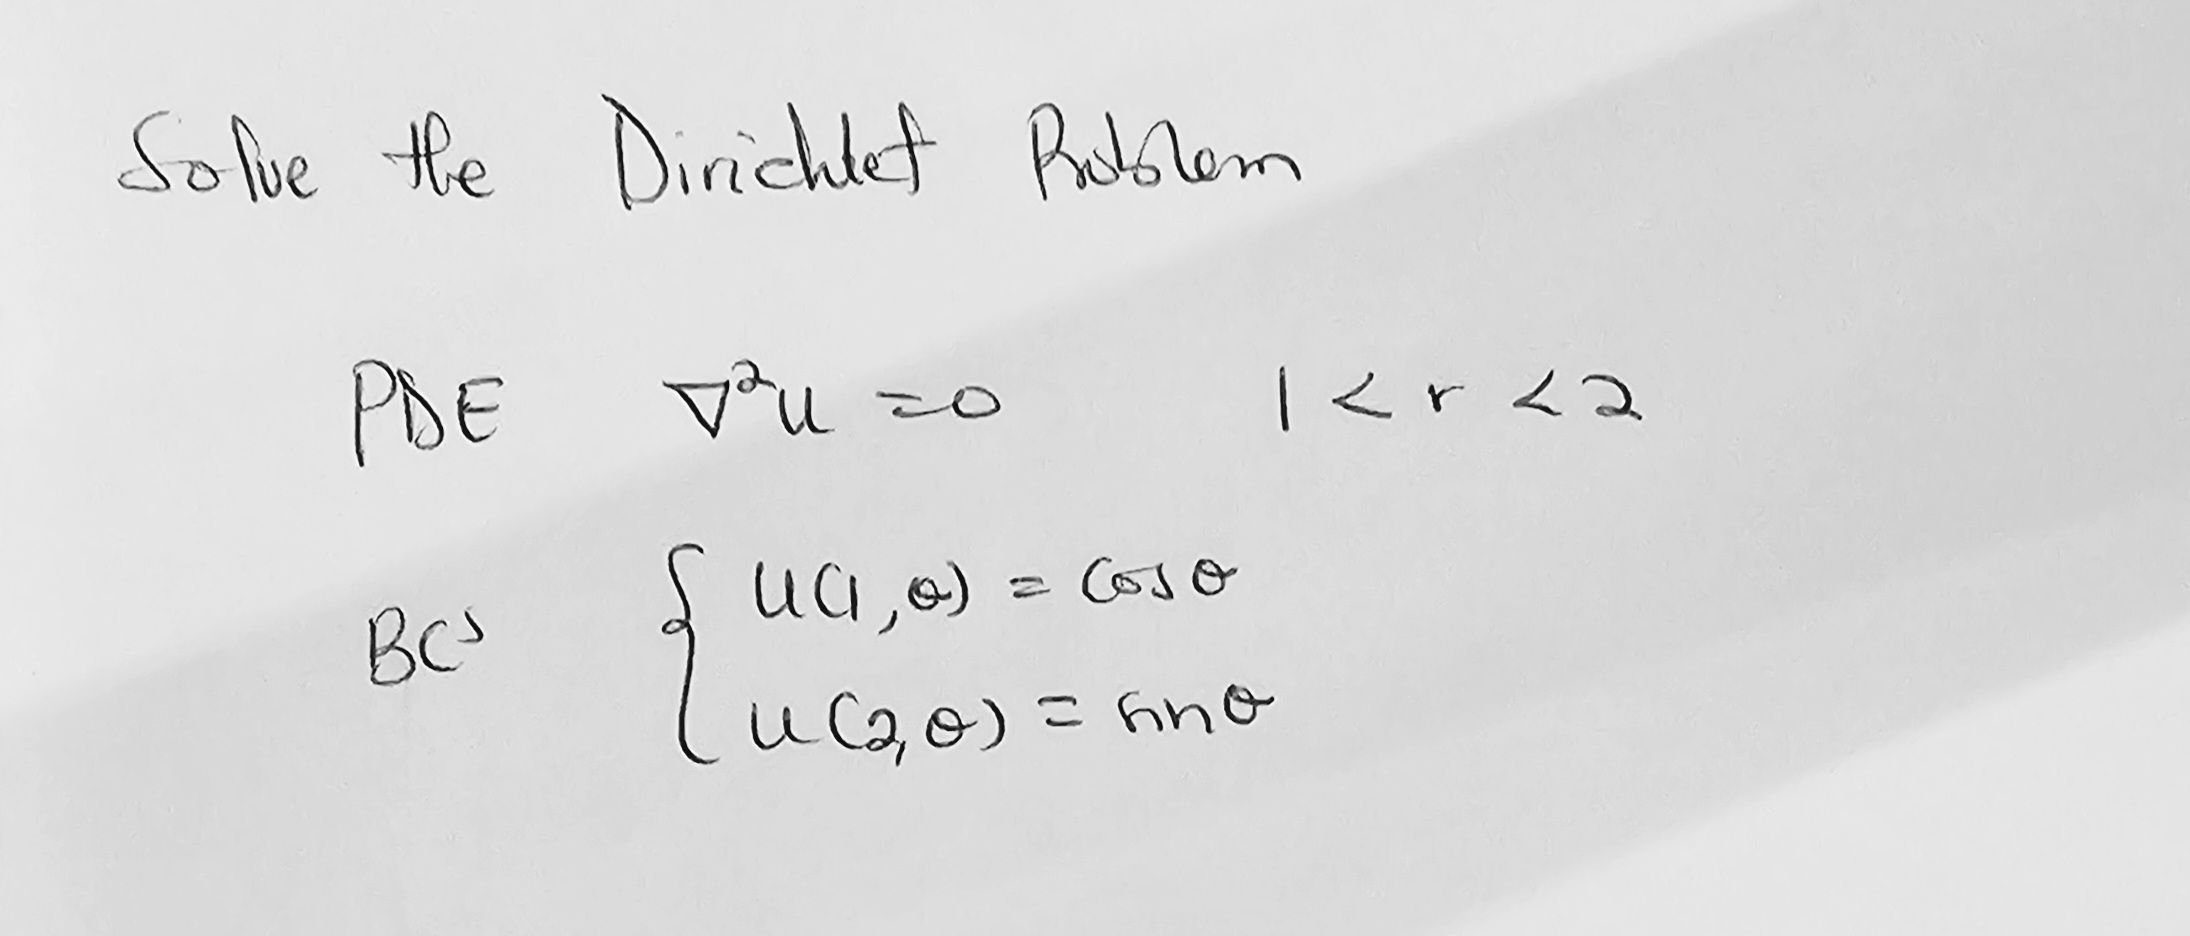 Solve the Dirichlet Problem
PDE ∇²u = 0 1 < r < 2
BCs { u(1, θ) = cos θ
u(2, θ) = sin θ